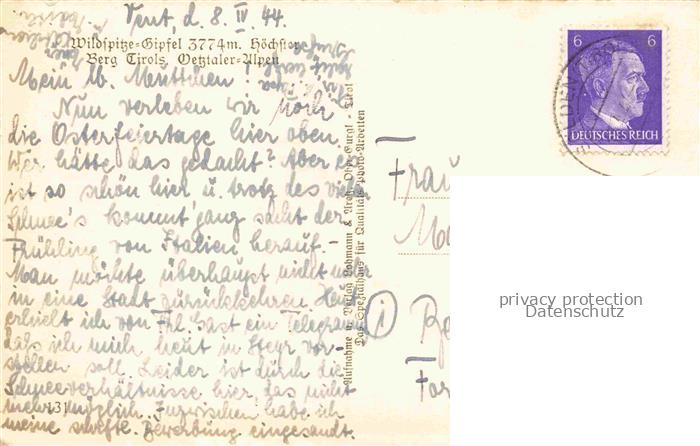 Vent, d. 8. IV 44.
Wildspitze-Gipfel 3774m. Höchster
Berg Tirols. Oetztaler-Alpen
Mein lb. Muttchen!
Nun verleben wir
die Osterfeiertage hier oben.
Wer hätte das gedacht? Aber es
ist so schön hier u. trotz des vielen
Schnee's kommt ganz sacht der
Frühling von Italien herauf.-
Man möchte überhaupt nicht mehr
in eine Stadt zurückkehren. Heute
erhielt ich von Frl. Gast ein Telegramm,
daß ich mich heut in Steyr vor-
stellen soll. Leider ist durch die
Schneeverhältnisse hier das nicht
mehr möglich. Inzwischen habe ich
meine schriftl. Bewerbung eingesandt.
131
Aufnahme u. Verlag Lohmann & Obergurgl - Tirol
Das Spezialhaus für Qualitäts-Photo-Arbeiten
6 6
DEUTSCHES REICH
Frau
i
privacy protection
Datenschutz